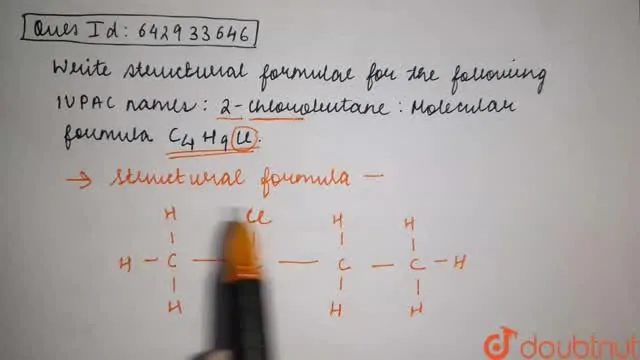 Ques Id: 642933646
Write structural formulae for the following
IUPAC names: 2-chlorobutane: Molecular
formula C4H9Cl.
→ Structural formula —
H Cl H H
H — C — C — C — C — H
H H H
doubtnut